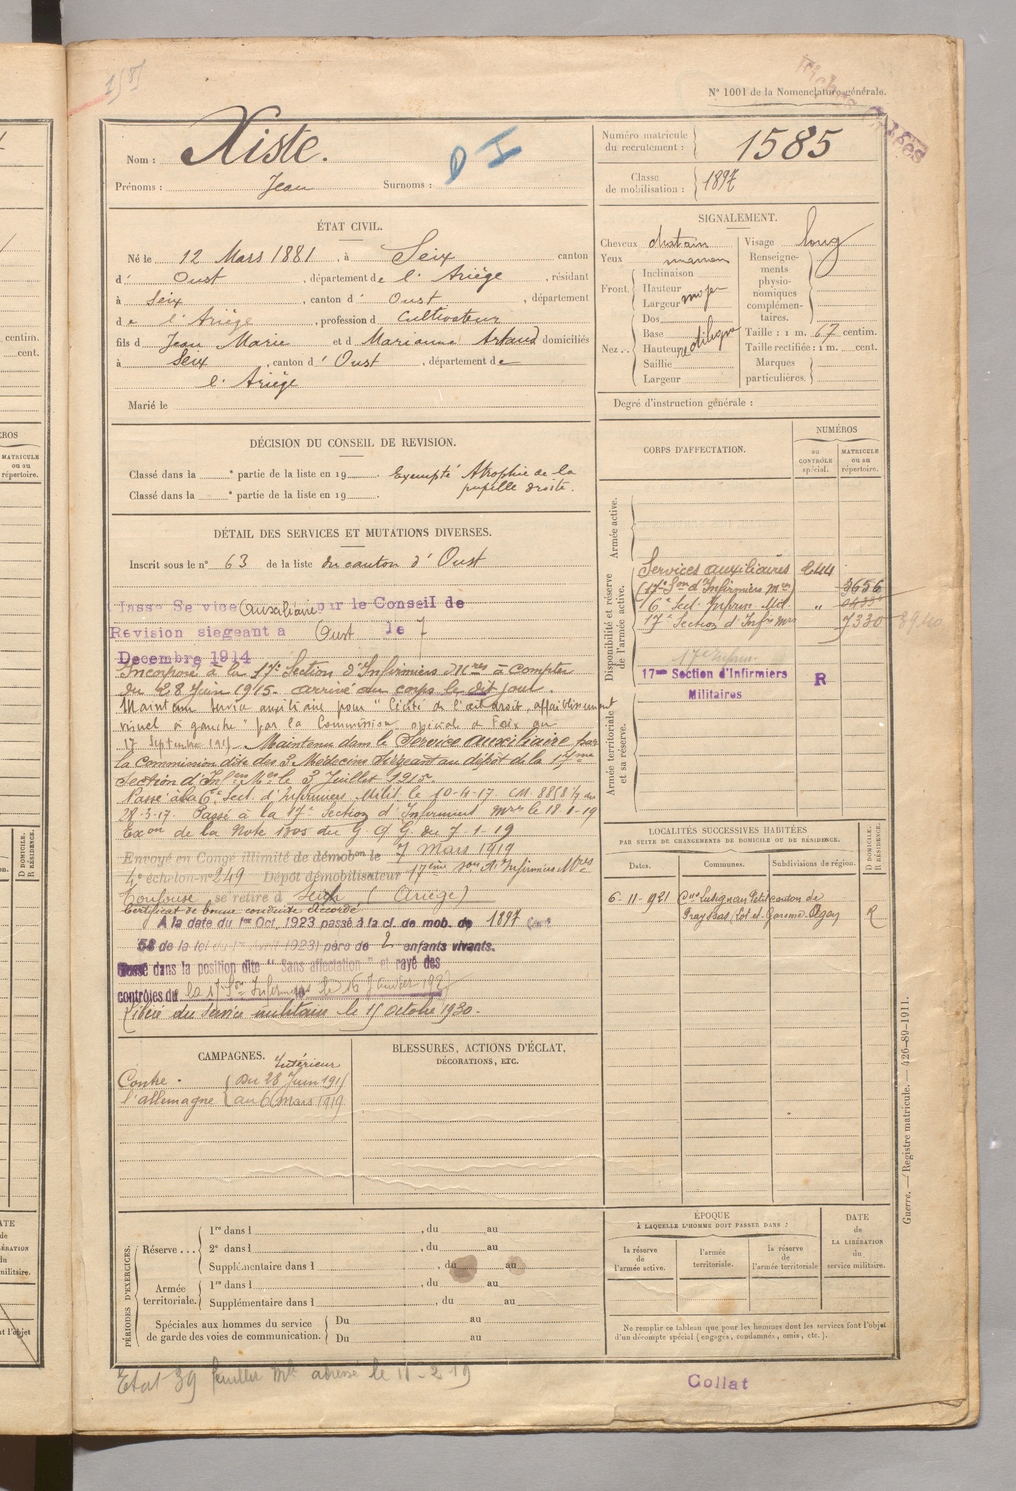 N° 1001 de la Nomenclature générale.
Nom : Xiste.
Prénoms : Jean Surnoms :
Numéro matricule du recrutement : 1585
Classe de mobilisation : 1897
ÉTAT CIVIL.
Né le 12 Mars 1881, à Seix canton
d' Oust, département de l'Ariège, résidant
à Seix, canton d' Oust, département
de l'Ariège, profession d Cultivateur
fils d Jean Marie et d Marianne Artaud domiciliés
à Seix, canton d' Oust, département de
l'Ariège
Marié le
SIGNALEMENT.
Cheveux chatain
Yeux marron
Front
Inclinaison
Hauteur
Largeur moyen
Nez
Dos
Base
Hauteur rectiligne
Saillie
Largeur
Visage long
Renseignements physionomiques complémentaires.
Taille : 1 m. 67 centim.
Taille rectifiée : 1 m. cent.
Marques particulières.
Degré d'instruction générale :
DÉCISION DU CONSEIL DE REVISION.
Classé dans la e partie de la liste en 19 Exempté Atrophie de la
Classé dans la e partie de la liste en 19 pupille droite.
DÉTAIL DES SERVICES ET MUTATIONS DIVERSES.
Inscrit sous le n° 63 de la liste du canton d'Oust
Classé Service Auxiliaire par le Conseil de
Revision siegeant a Oust le 7
Decembre 1914
Incorporé à la 17e Section d'Infirmiers Mres à compter
du 28 Juin 1915. arrivé au corps le dit jour.
Maintenu service auxiliaire pour "Cécité de l'œil droit, affaiblissement
visuel à gauche" par la Commission spéciale de Foix du
17 Septembre 191 Maintenu dans le Service auxiliaire par
la Commission dite des 3 Médecins siégeant au dépôt de la 17me
Section d'Inf.ers Mres le 3 Juillet 1915.
Passé à la 6e Sect. d'Infirmiers Milit. le 10-4-17. CM 8858 1/7 du
28-3-17. Passé à la 17e Section d'Infirmiers Mres le 18-1-19
Exon de la Note du G.Q.G. du 7-1-19
Envoyé en Congé illimité de démobon le 7 Mars 1919
4e échelon n° 249 Dépôt démobilisateur 17ème Son d'Infirmiers Mres
Toulouse se retire à Seix (Ariège)
Certificat de bonne conduite Accordé
A la date du 1er Oct. 1923 passé à la cl. de mob. de 1897
58 de la loi du 1er Avril 1923) père de 2 enfants vivants.
Classé dans la position dite "Sans affectation" et rayé des
contrôles de la 17e Son Infirmiers le 16 Janvier 1927
Libéré du service militaire le 15 octobre 1930.
CORPS D'AFFECTATION.
NUMÉROS
au CONTRÔLE spécial.
MATRICULE ou au répertoire.
Armée active.
Disponibilité et réserve de l'armée active.
Services auxiliaires 2644
(17e Son d'Infirmiers Mres 3656
16e Sect. Infirm. Mil. "
17e Section d'Infrs Mres 7330
17e Infirm.
17me Section d'Infirmiers R
Militaires
Armée territoriale et sa réserve.
LOCALITÉS SUCCESSIVES HABITÉES
PAR SUITE DE CHANGEMENTS DE DOMICILE OU DE RÉSIDENCE.
Dates. Communes. Subdivisions de région. D DOMICILE. R RÉSIDENCE.
6-11-921 Cne Lusignan Petit canton de
Prayssas, Lot et Garonne Agen R
CAMPAGNES.
Intérieur
Contre Du 28 Juin 1915
l'allemagne au 6 Mars 1919
BLESSURES, ACTIONS D'ÉCLAT,
DÉCORATIONS, ETC.
PÉRIODES D'EXERCICES.
Réserve
1re dans l , du au
2e dans l , du au
Supplémentaire dans l , du au
Armée territoriale.
1re dans l , du au
Supplémentaire dans l , du au
Spéciales aux hommes du service de garde des voies de communication.
Du au
Du au
ÉPOQUE
À LAQUELLE L'HOMME DOIT PASSER DANS :
la réserve de l'armée active.
l'armée territoriale.
la réserve de l'armée territoriale
DATE de LA LIBÉRATION du service militaire.
Ne remplir ce tableau que pour les hommes dont les services font l'objet
d'un décompte spécial (engagés, condamnés, omis, etc.).
Guerre. — Registre matricule. — 426-89-1911.
Etat 39 feuillet Mle adressé le 11-2-19
Collat